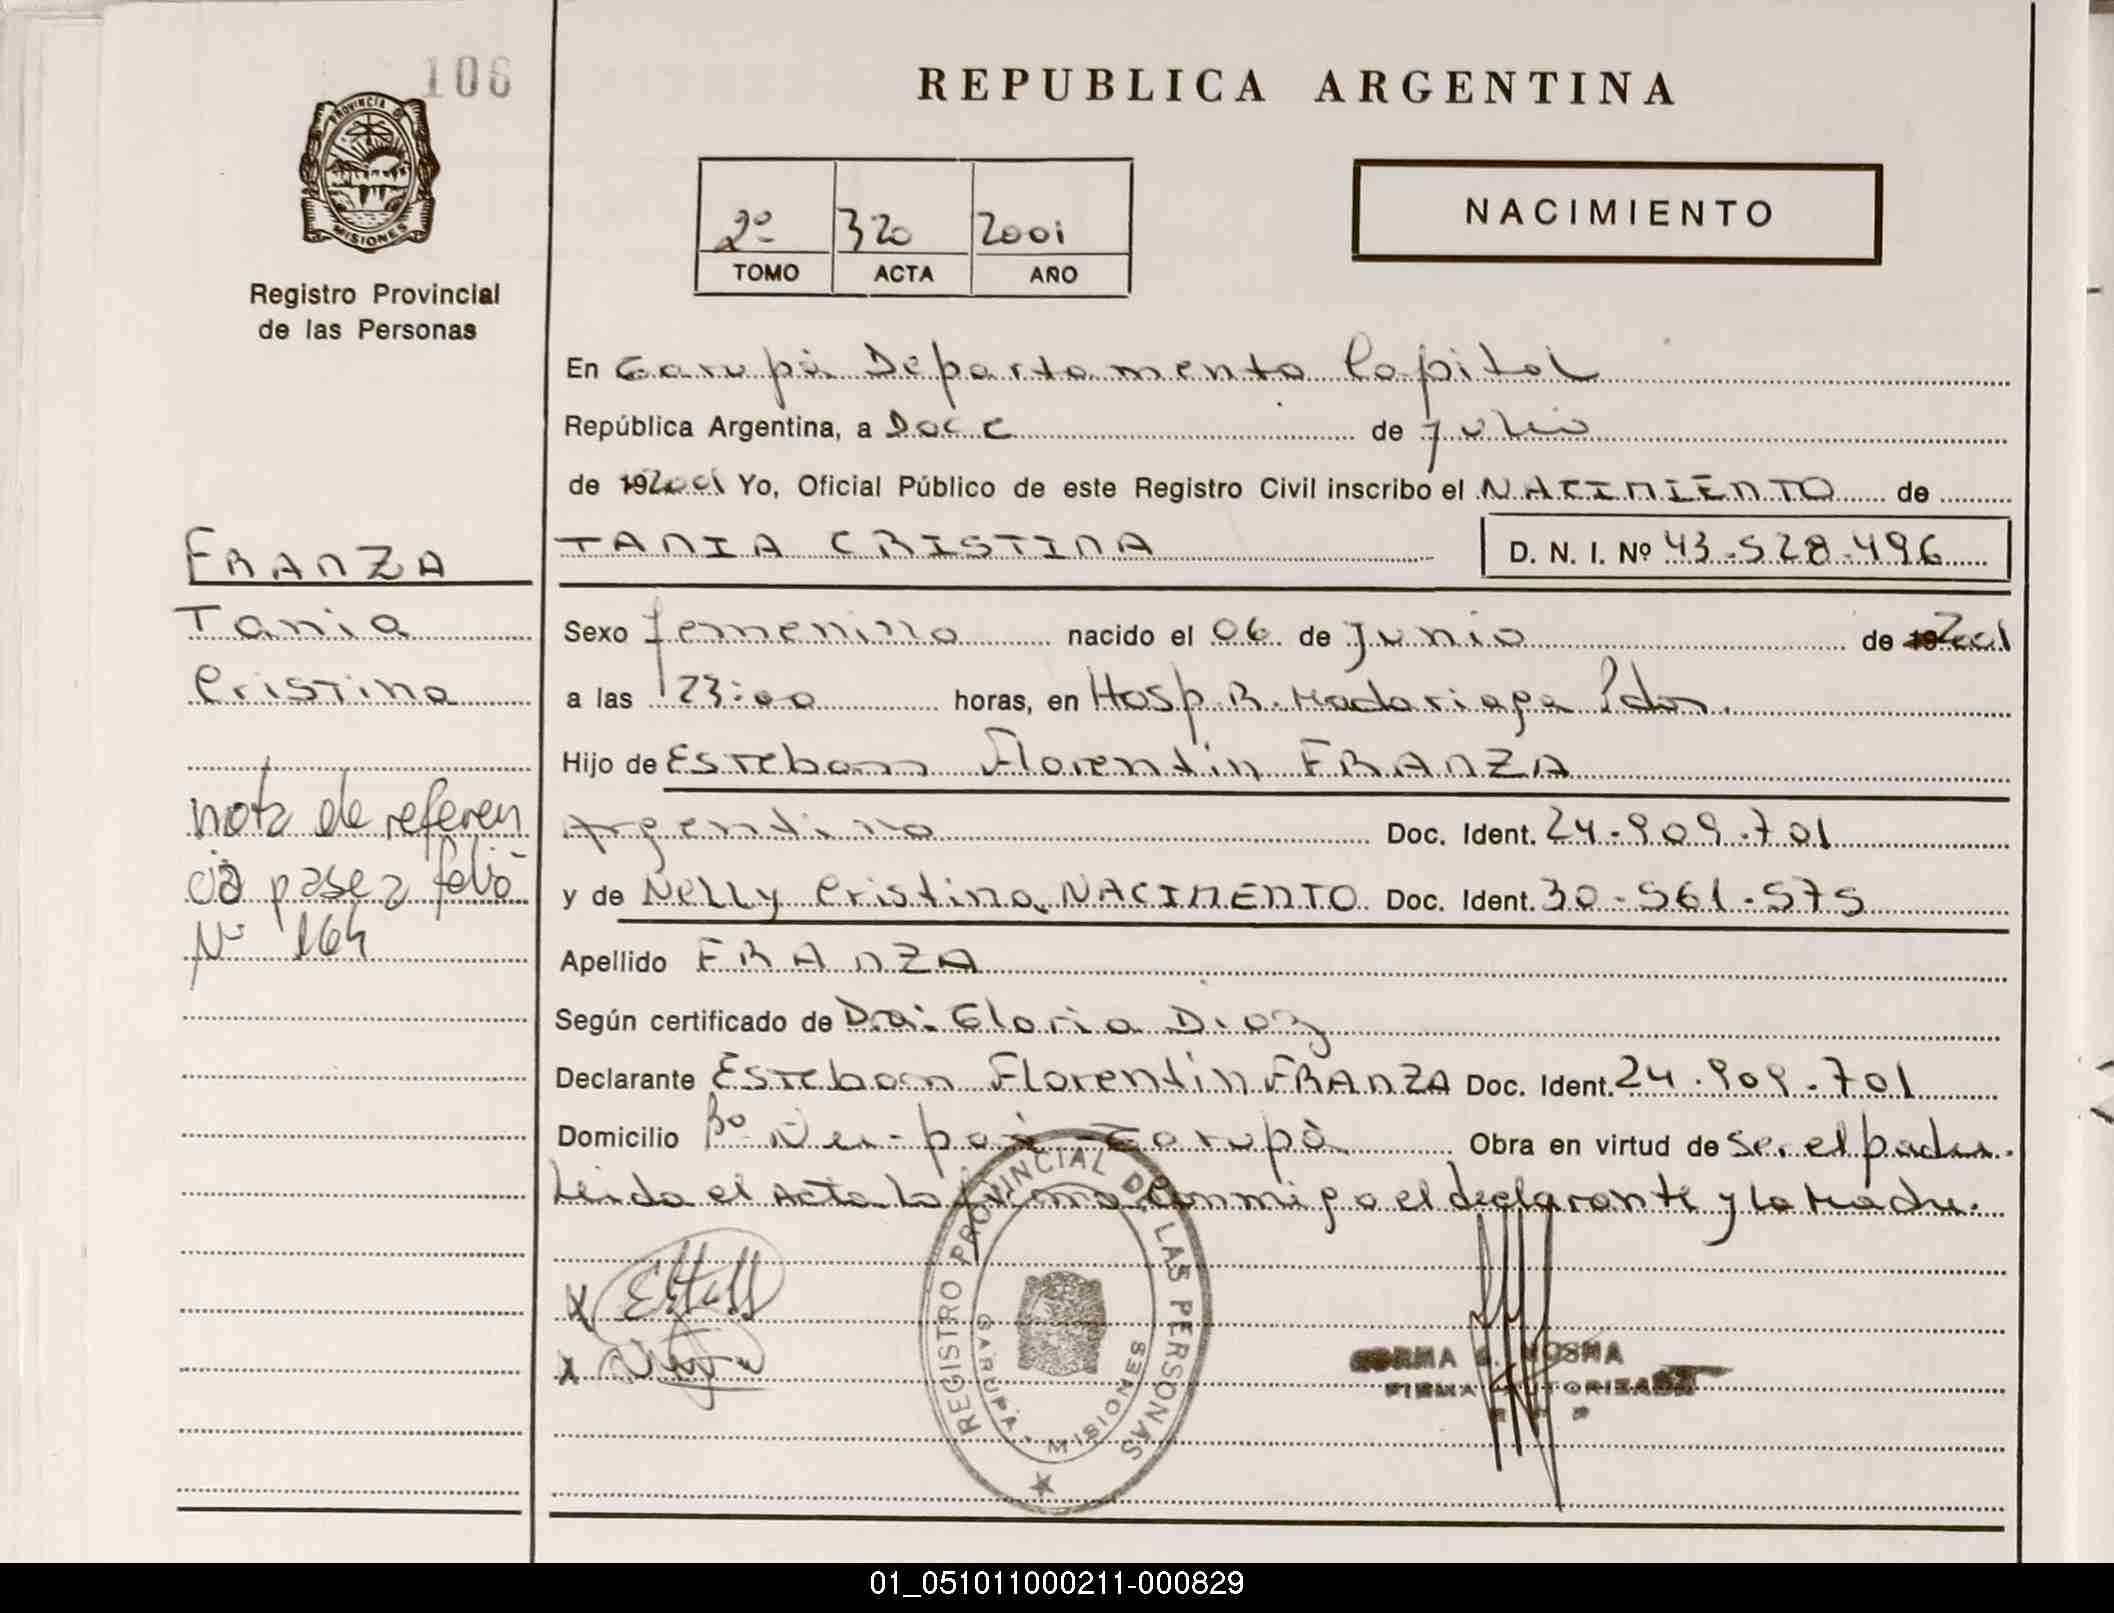 106
PROVINCIA DE
MISIONES
Registro Provincial
de las Personas
REPUBLICA ARGENTINA
2º 320 2001
TOMO ACTA AÑO
NACIMIENTO
En Garupá Departamento Capital
República Argentina, a Doce de julio
de 192001 Yo, Oficial Público de este Registro Civil inscribo el NACIMIENTO de
TANIA CRISTINA D. N. I. Nº 43.528.496
FRANZA
Tania
Cristina
nota de referen
cia pase a folio
Nº 164
Sexo femenino nacido el 06 de Junio de 192001
a las 23:00 horas, en Hosp. R. Madariaga Pdas.
Hijo de Esteban Florentin FRANZA
Argentino Doc. Ident. 24.909.701
y de Nelly Cristina NACIMENTO Doc. Ident. 30.561.575
Apellido FRANZA
Según certificado de Dra: Gloria Diaz
Declarante Esteban Florentin FRANZA Doc. Ident. 24.909.701
Domicilio Bº Ñu-porá - Garupá Obra en virtud de ser el padre.
Leida el Acta la firma Conmigo el declarante y la Madre.
REGISTRO PROVINCIAL DE LAS PERSONAS
GARUPA - MISIONES
NORMA MOSNA
FIRMA AUTORIZADA
01_051011000211-000829